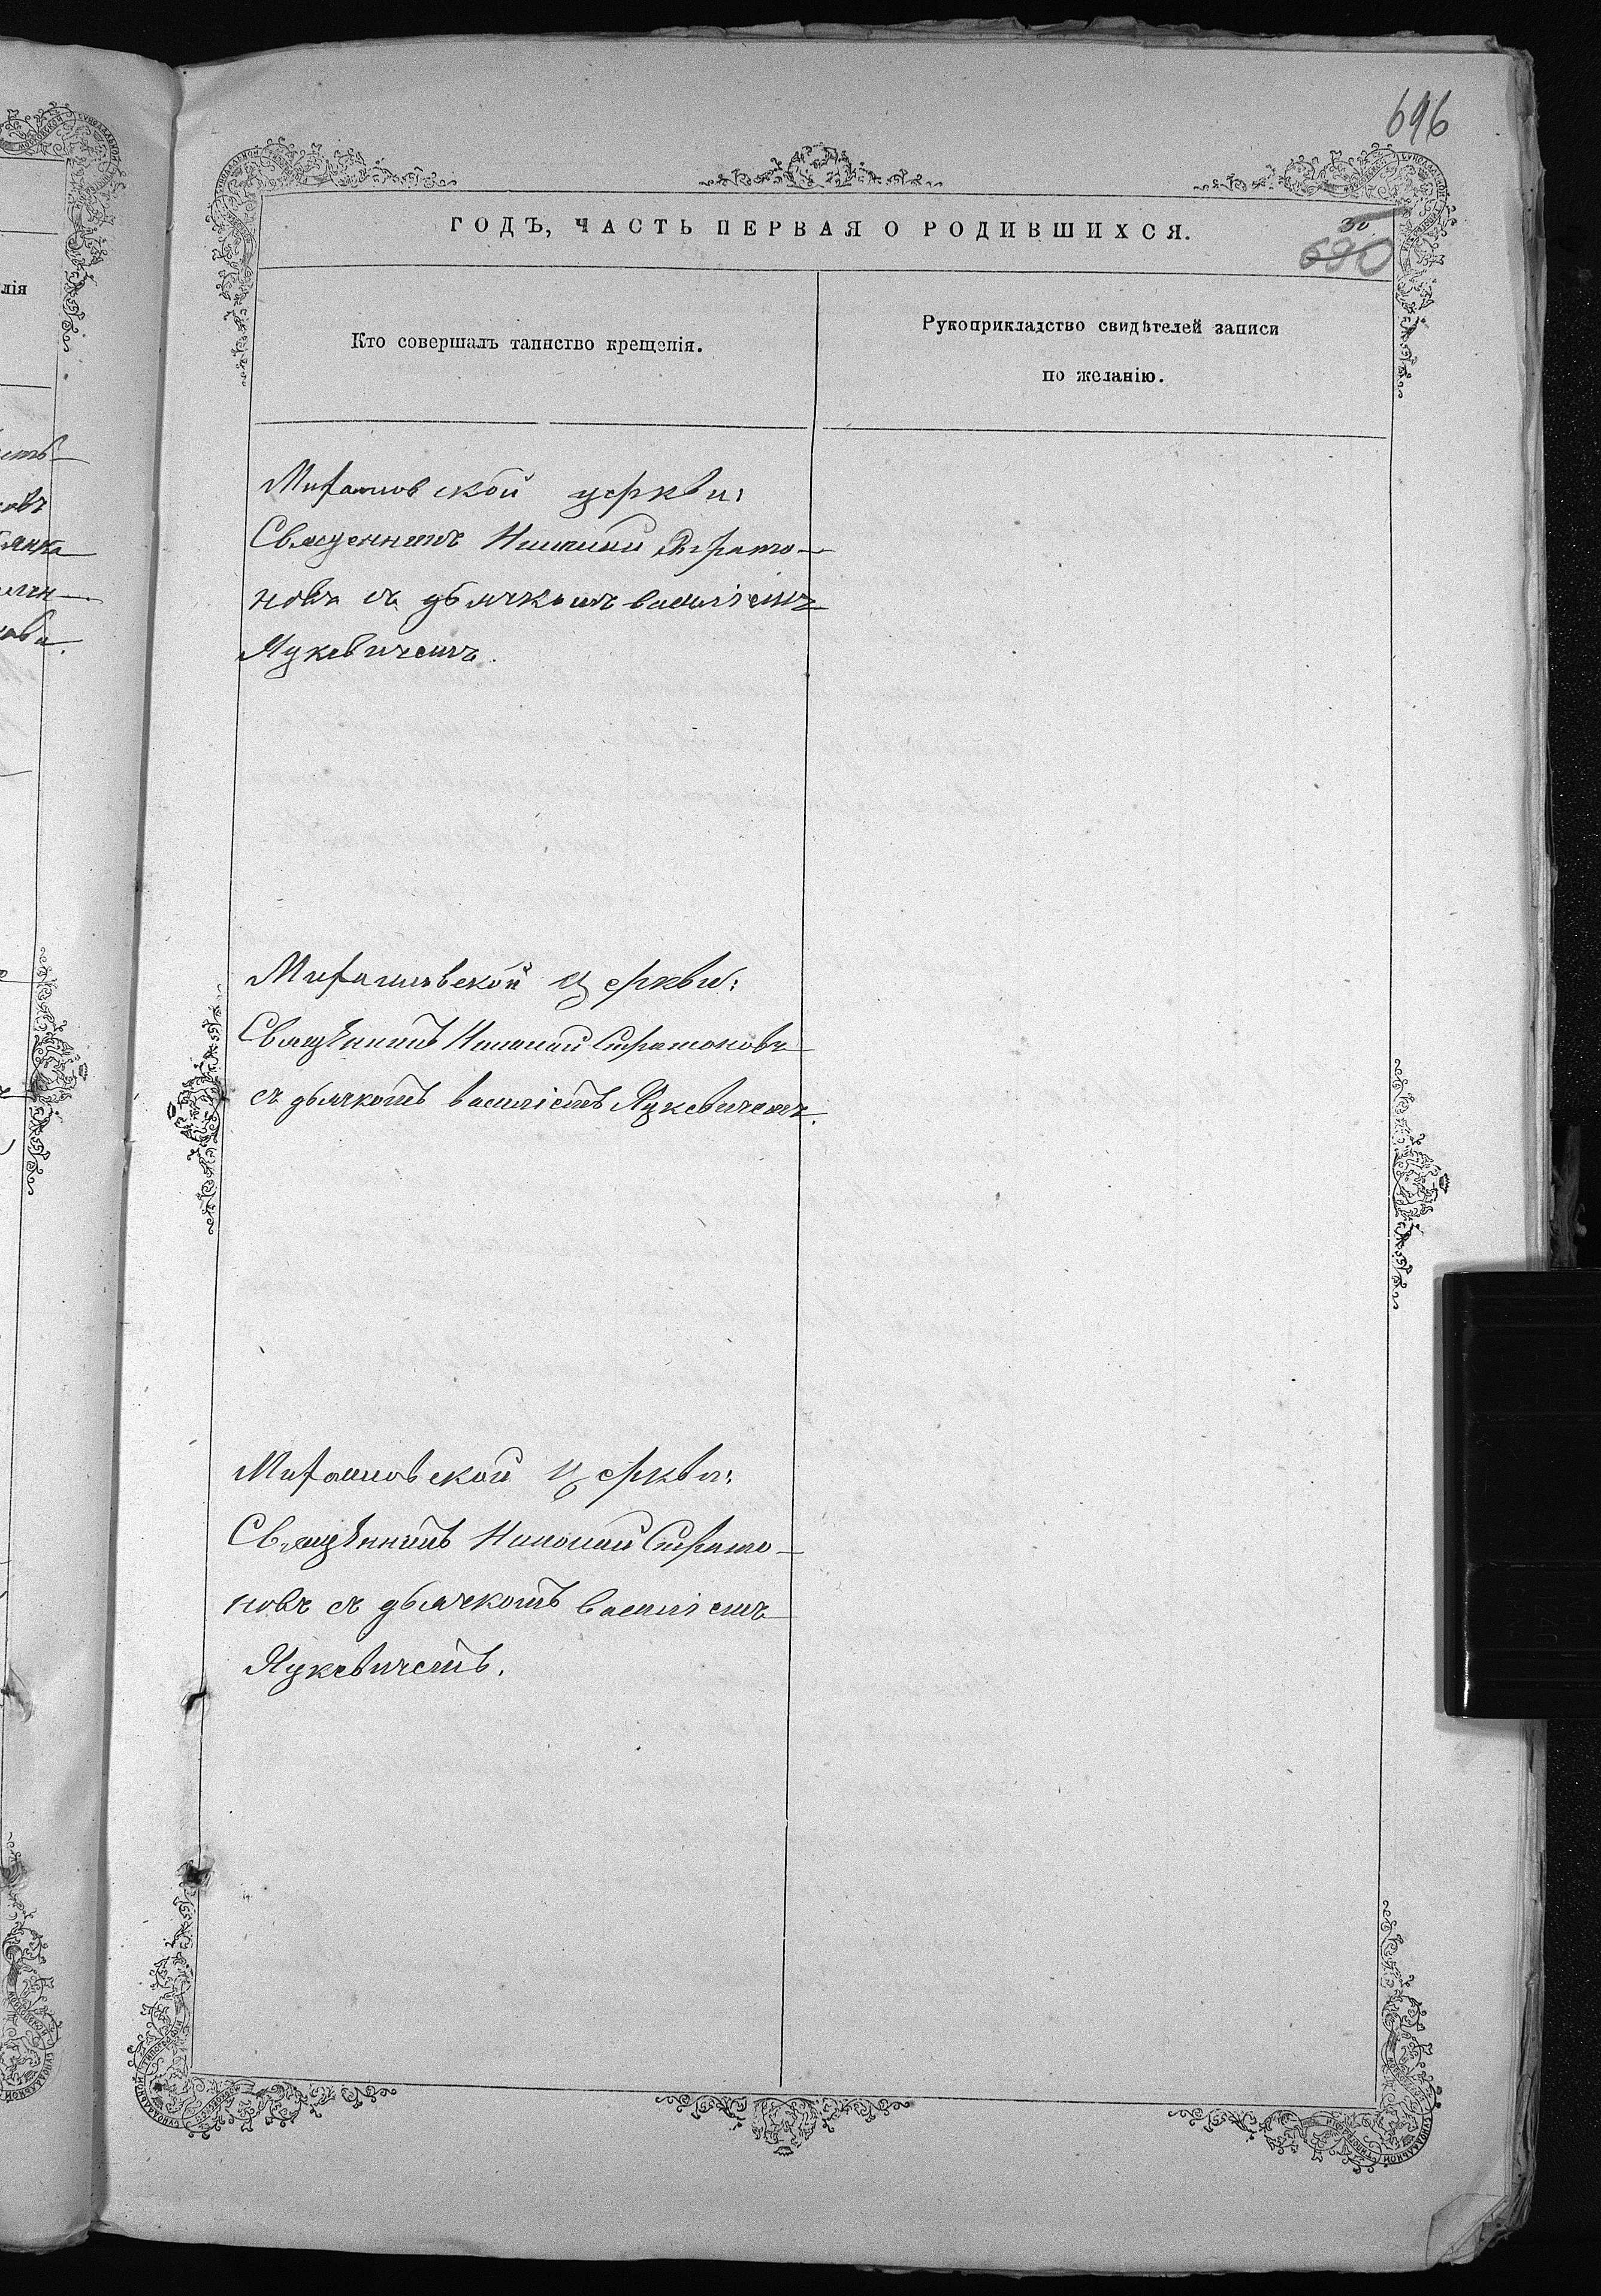 696
ГОДЪ, ЧАСТЬ ПЕРВАЯ О РОДИВШИХСЯ.
30
690
Кто совершалъ таинство крещенія.
Рукоприкладство свидѣтелей записи
по желанію.
церкви:
Священникъ Николай Страто-
новъ съ дьячкомъ Василіемъ
Яцкевичемъ.
церкви:
Священникъ Николай Стратоновъ
съ дьячкомъ Василіемъ Яцкевичемъ.
церкви:
Священникъ Николай Страто-
новъ съ дьячкомъ Василіемъ
Яцкевичемъ.